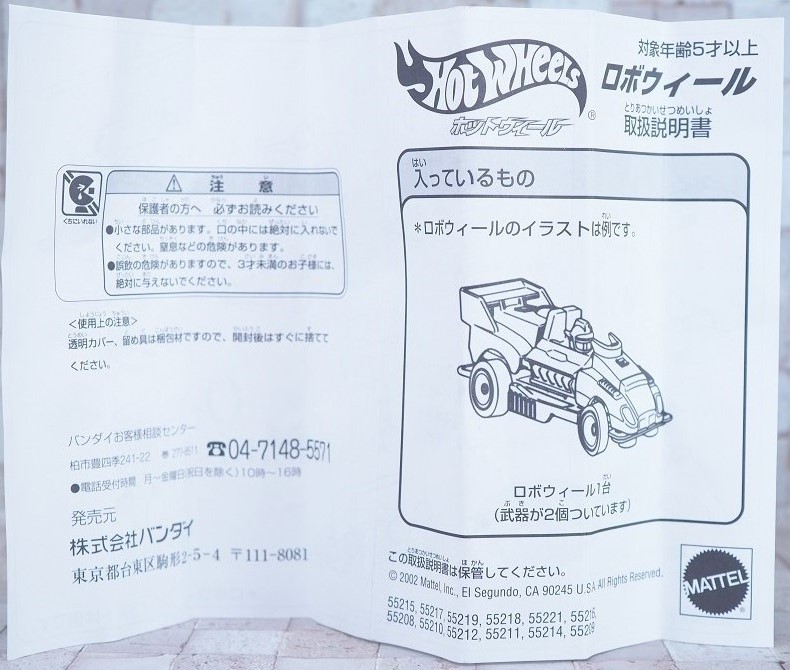 くちにいれない
⚠ 注意
保護者の方へ 必ずお読みください
●小さな部品があります。口の中には絶対に入れないで
ください。窒息などの危険があります。
●誤飲の危険がありますので、3才未満のお子様には、
絶対に与えないでください。
<使用上の注意>
透明カバー、留め具は梱包材ですので、開封後はすぐに捨てて
ください。
バンダイお客様相談センター
柏市豊四季241-22 〒277-8511 ☎04-7148-5571
●電話受付時間 月〜金曜日(祝日を除く)10時〜16時
発売元
株式会社バンダイ
東京都台東区駒形2-5-4 〒111-8081
HOT WHEELS®
ホットウィール
対象年齢5才以上
ロボウィール
とりあつかいせつめいしょ
取扱説明書
はい
入っているもの
れい
*ロボウィールのイラストは例です。
さい
ロボウィール1台
ぶき こ
(武器が2個ついています)
とりあつかいせつめいしょ ほかん
この取扱説明書は保管してください。
© 2002 Mattel, Inc., El Segundo, CA 90245 U.S.A All Rights Reserved.
55215, 55217, 55219, 55218, 55221, 55216,
55208, 55210, 55212, 55211, 55214, 55209
MATTEL®